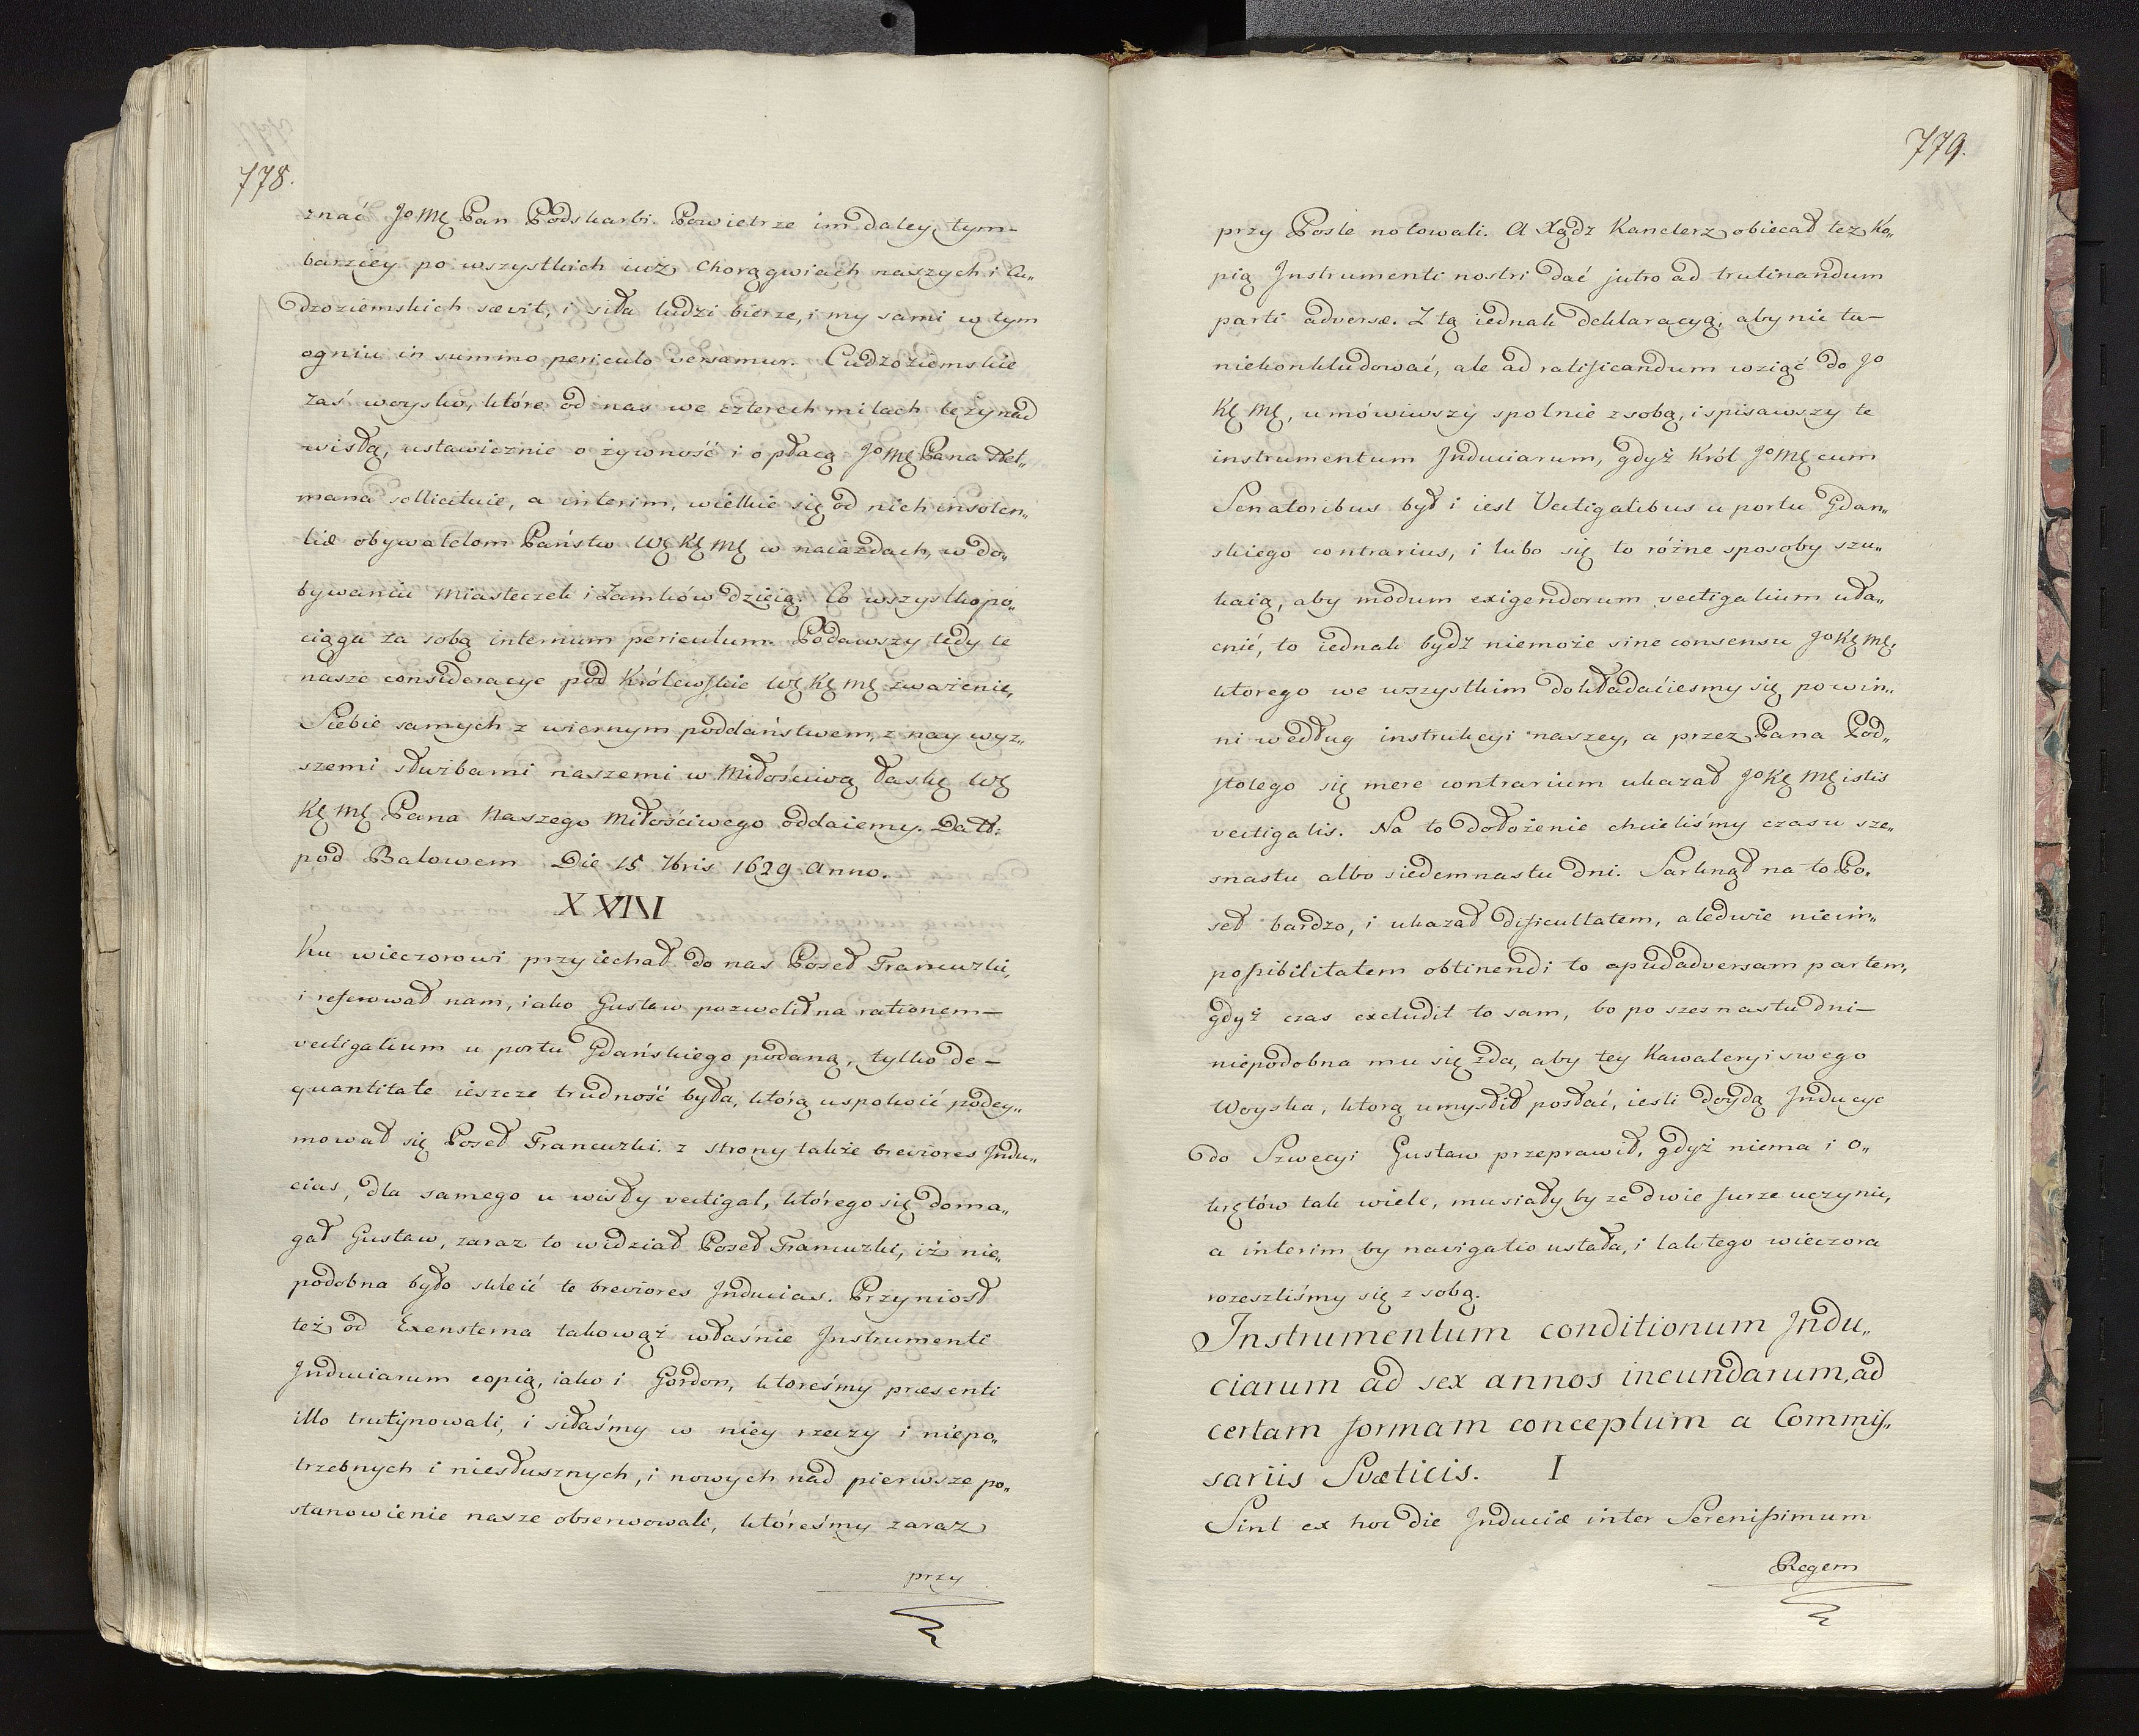 778.
znać Jo Mę Pan Podskarbi. Powietrze im daley, tym-
barziey po wszystkich iuż Chorągwiach naszych i Cu„
dzoziemskich sævit, i siła ludzi bierze, i my sami w tym
ogniu in summo periculo versamur. Cudzoziemskie
zaś woysko, które od nas we czterech milach leży nad
wisłą, ustawicznie o żywność i o płacą Jo Mę Pana Het„
mana sollicituie, a interim, wielkie się od nich insolen„
tiæ obywatelom Państw Wę Kę Mę w naiazdach, w do„
bywaniu Miasteczek i Zamków dzieią. Co wszystko po„
ciąga za sobą internum periculum. Podawszy tedy te
nasze consideracye pod Królewskie Wę Kę Mę zważenie,
Siebie samych z wiernym poddaństwem, z nay wyz„
szemi służbami naszemi w Miłościwą łaskę Wę
Kę Mę Pana Naszego Miłościwego oddaiemy. Datt:
pod Balowem Die 15 7bris 1629 Anno.
XXVIII
Ku wieczorowi przyiechał do nas Poseł Francuzki,
i referował nam, iako Gustaw pozwolił na rationem-
vectigalium u portu Gdańskiego podaną, tylko de-
quantitate ieszcze trudność była, którą uspokoić podey„
mował się Poseł Francuzki. z strony także breviores Indu„
cias, dla samego u wisły vectigal, którego się doma„
gał Gustaw, zaraz to widział Poseł Francuzki, iż nie„
podobna było skleić te breviores Inducias. Przyniosł
też od Exensterna takowąż właśnie Instrumenti
Induciarum copią, iako i Gordon, któreśmy præsenti
illo trutynowali, i siłaśmy w niey rzeczy i niepo„
trzebnych i niesłusznych, i nowych nad pierwsze po„
stanowienie nasze obserwowali, któreśmy zaraz
przy
779.
przy Posle notowali. A Xądz Kanclerz obiecał też Ko„
pią Instrumenti nostri dać jutro ad trutinandum
parti adversæ. Z tą iednak deklaracyą, aby nic tu-
niekonkludować, ale ad ratificandum wziąć do Jo
Kę Mę, umówiwszy spolnie z sobą, i spisawszy te
instrumentum Induciarum, gdyż Król Jo Mę cum
Senatoribus był i iest Vectigalibus u portu Gdan„
skiego contrarius, i lubo się to różne sposoby szu„
kaią, aby modum exigendorum vectigalium uła„
cnić, to iednak bydź niemoże sine consensu Jo Kę Mę,
ktorego we wszystkim dokładaćiesmy się powin„
ni według instrukcyi naszey, a przez Pana Pod„
stolego się mere contrarium ukazał Jo Kę Mę istis
vectigalis. Na to dołożenie chcieliśmy czasu sze„
snastu albo siedemnastu dni. Sarknął na to Po„
seł bardzo, i ukazał dificultatem, aledwie nieim„
possibilitatem obtinendi to apud adversam partem,
gdyż czas excludit to sam, bo po szesnastu dni-
niepodobna mu się zda, aby tey Kawaleryi swego
Woyska, ktorą umyslił posłać, iesli doydą Inducye
do Szwecyi Gustaw przeprawił, gdyż niema i o„
krętów tak wiele, musiały by ze dwie furze uczynić,
a interim by navigatio ustała, i tak tego wieczora
rozeszliśmy się z sobą.
Instrumentum conditionum Indu„
ciarum ad sex annos ineundarum, ad
certam formam conceptum a Commis„
sariis Svæticis. I
Sint ex hoc die Induciæ inter Serenissimum
Regem